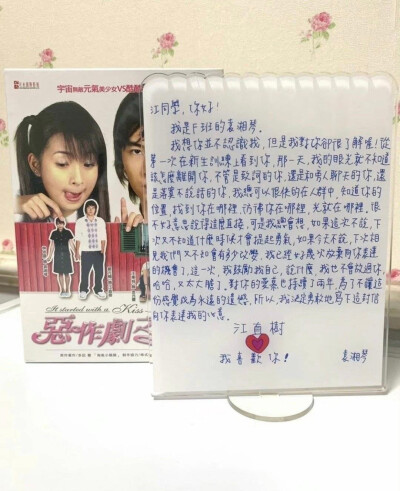 宇宙無敵元氣美少女VS酷酷
It started with a Kiss
惡作劇之
江同學,你好!
我是F班的袁湘琴。
我想你並不認識我,但是我對你卻很了解喔!從
第一次在新生訓練上看到你,那一天,我的眼光就不知道
該怎麼離開你,不管是致詞的你,還是和旁人聊天的你,還
是落寞不說話的你,我總可以很快的在人群中,知道你的
位置,找到你在哪裡,彷彿你在哪裡,光就在哪裡,很
不好意思說得這麼直接,可是我總會想,如果這次不說,下
次又不知道什麼時候才會提起勇氣,如果今天不說,下次相
見我們又不知會有多少改變,我已經好幾次放棄向你表達
的機會了,這一次,我鼓勵我自己,說什麼,我也不會放過你,
哈哈,又太大膽了,對你的愛慕已持續了兩年,為了不讓這
份感覺成為永遠的遺憾,所以,我決定勇敢地寫下這封信
向你表達我的心意。
江直樹
我喜歡你!
袁湘琴